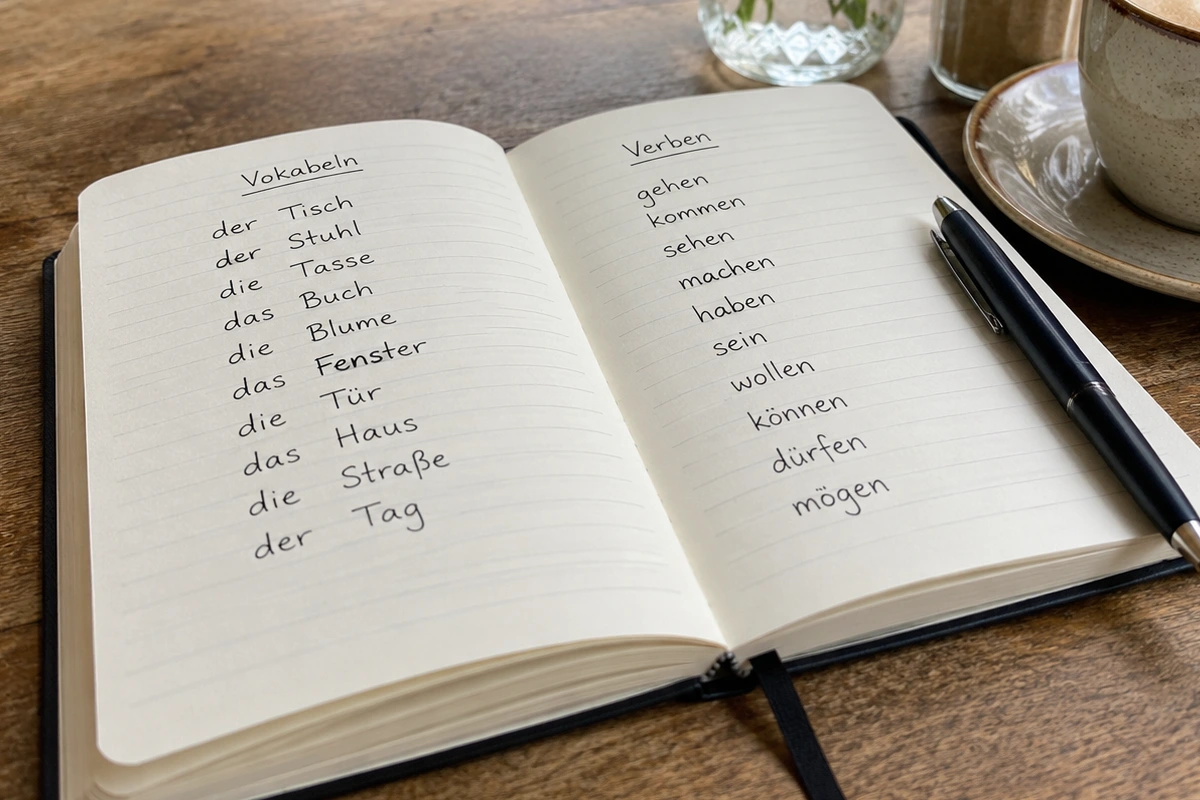 Vokabeln
der Tisch
der Stuhl
die Tasse
das Buch
die Blume
das Fenster
die Tür
das Haus
die Straße
der Tag
Verben
gehen
kommen
sehen
machen
haben
sein
wollen
können
dürfen
mögen